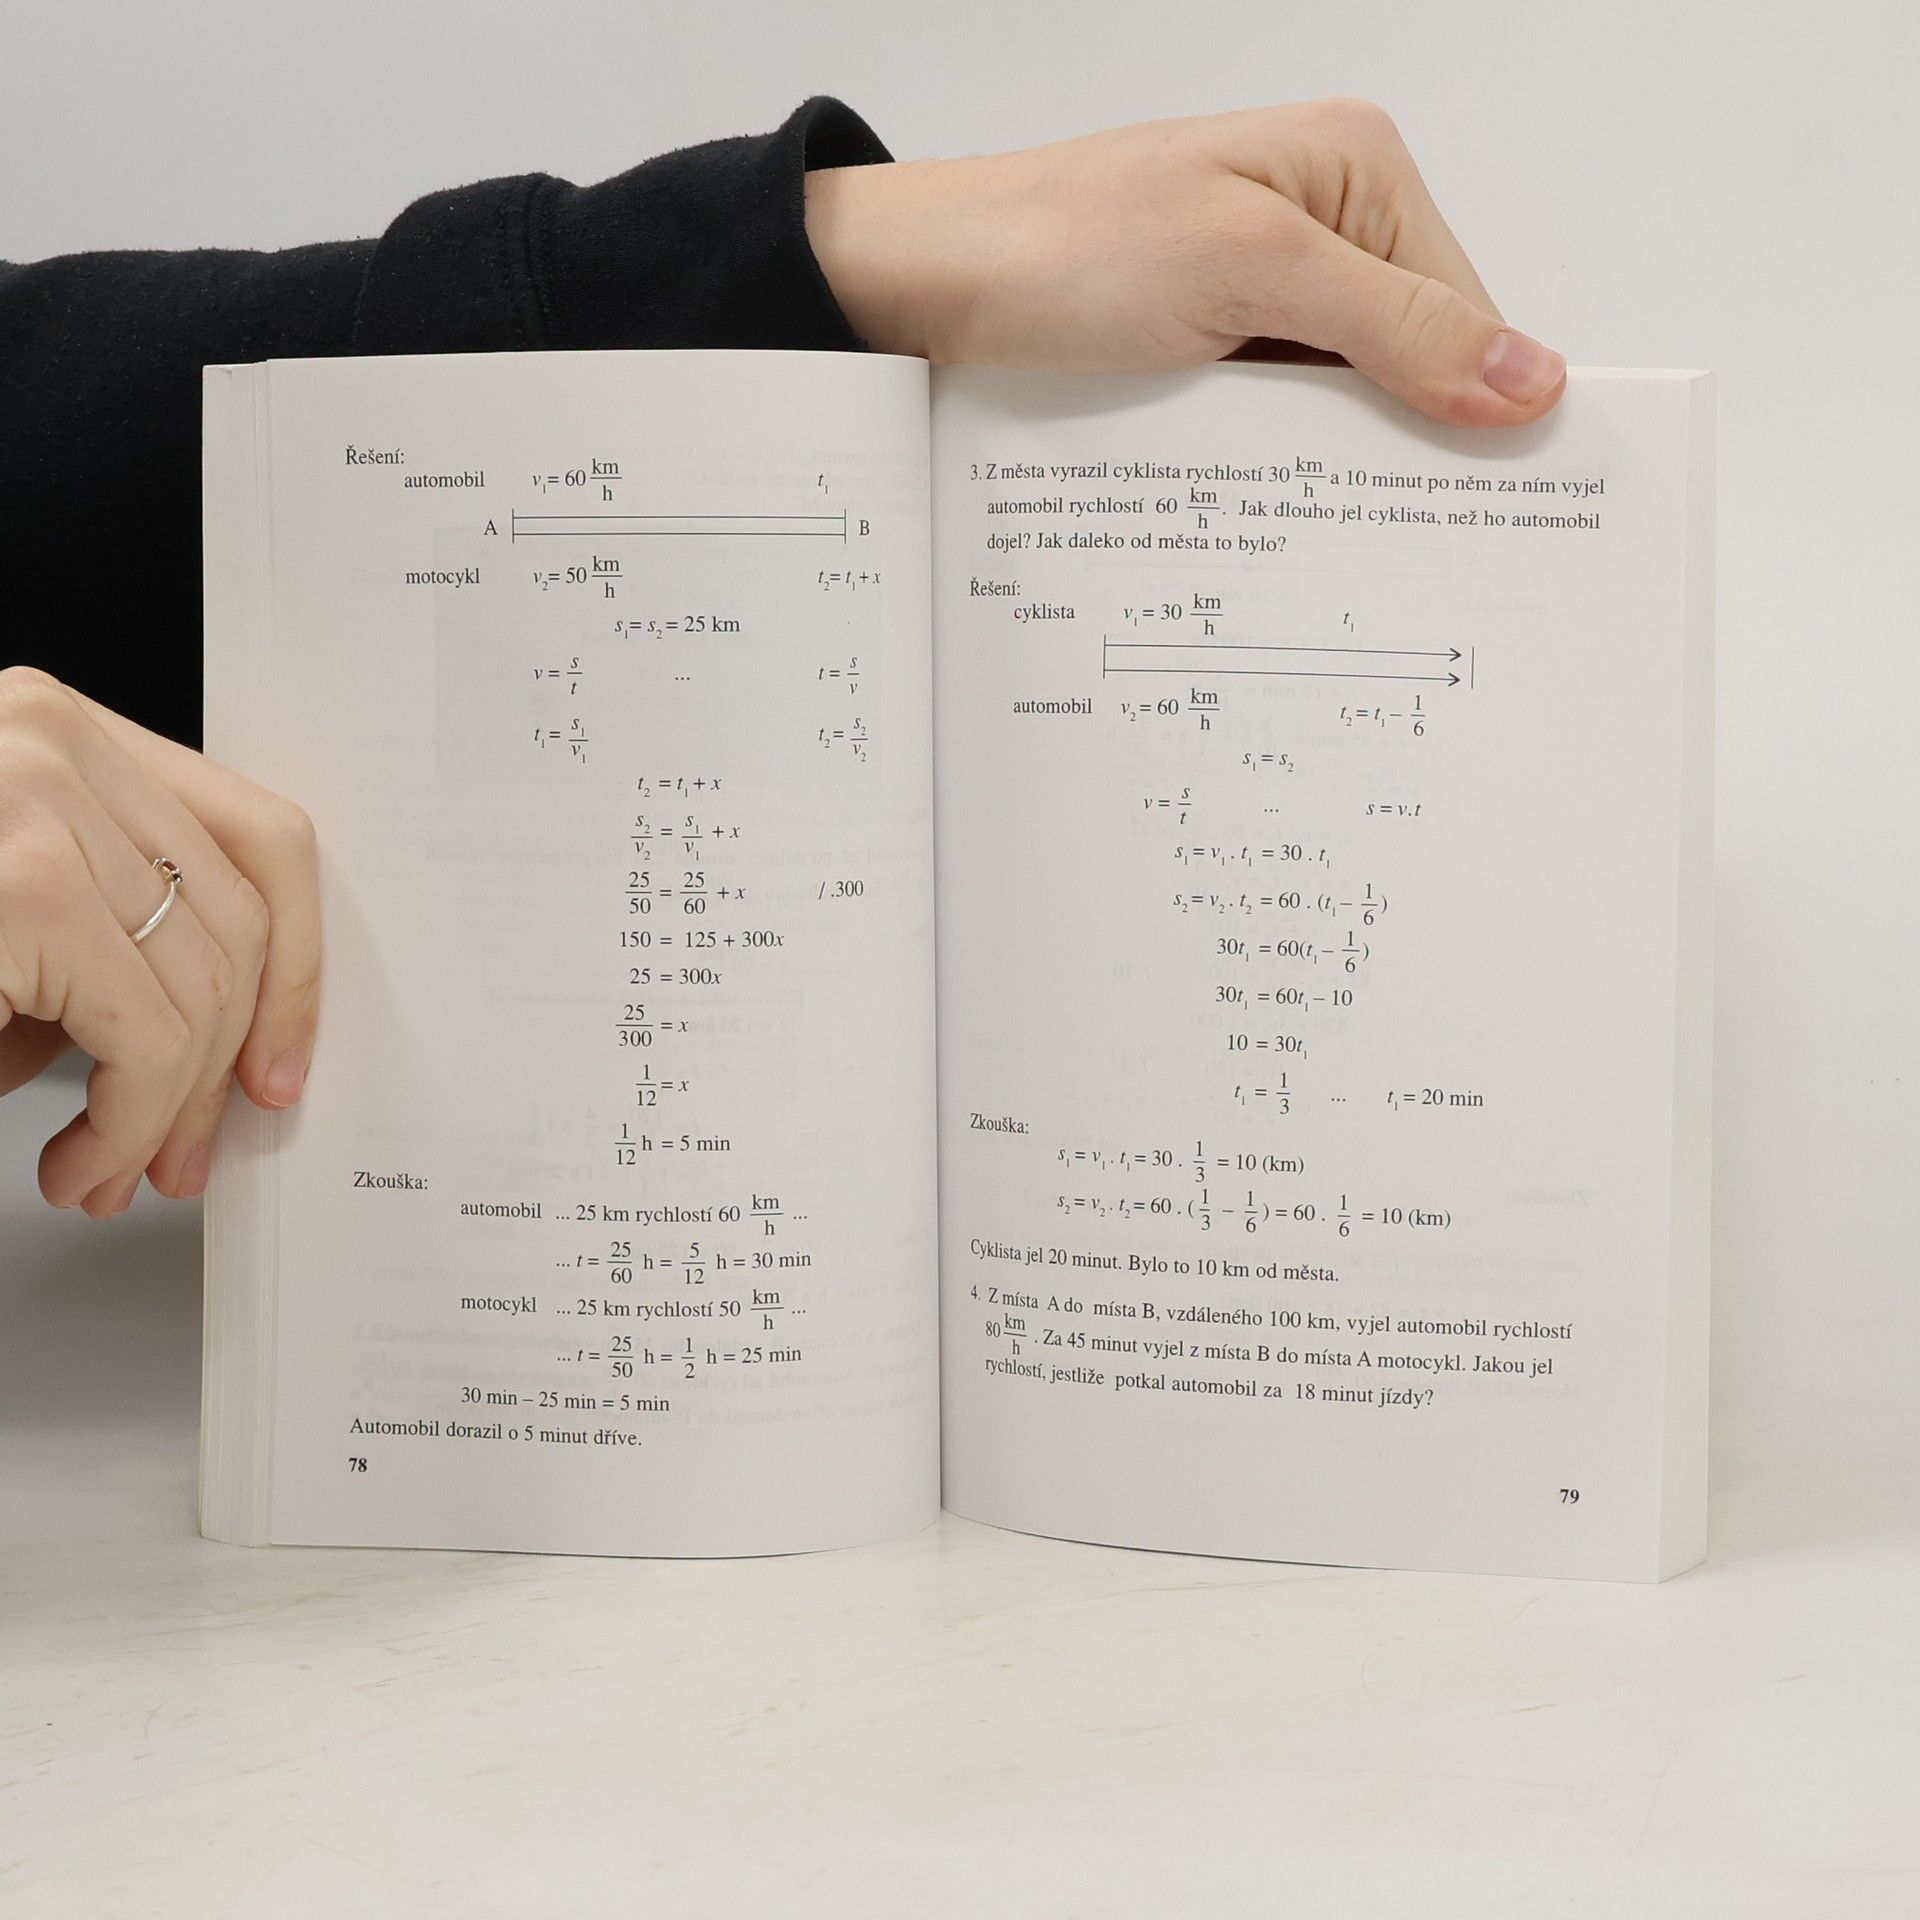 Řešení:
automobil v₁= 60 km/h t₁
A B
motocykl v₂= 50 km/h t₂= t₁ + x
s₁= s₂ = 25 km
v = s/t ... t = s/v
t₁ = s₁/v₁ t₂ = s₂/v₂
t₂ = t₁ + x
s₂/v₂ = s₁/v₁ + x
25/50 = 25/60 + x / .300
150 = 125 + 300x
25 = 300x
25/300 = x
1/12 = x
1/12 h = 5 min
Zkouška:
automobil ... 25 km rychlostí 60 km/h ...
... t = 25/60 h = 5/12 h = 30 min
motocykl ... 25 km rychlostí 50 km/h ...
... t = 25/50 h = 1/2 h = 25 min
30 min – 25 min = 5 min
Automobil dorazil o 5 minut dříve.
78
3. Z města vyrazil cyklista rychlostí 30 km/h a 10 minut po něm za ním vyjel
automobil rychlostí 60 km/h. Jak dlouho jel cyklista, než ho automobil
dojel? Jak daleko od města to bylo?
Řešení:
cyklista v₁ = 30 km/h t₁
automobil v₂ = 60 km/h t₂ = t₁ – 1/6
s₁ = s₂
v = s/t ... s = v.t
s₁ = v₁ . t₁ = 30 . t₁
s₂ = v₂ . t₂ = 60 . (t₁ – 1/6)
30t₁ = 60(t₁ – 1/6)
30t₁ = 60t₁ – 10
10 = 30t₁
t₁ = 1/3 ... t₁ = 20 min
Zkouška:
s₁ = v₁ . t₁ = 30 . 1/3 = 10 (km)
s₂ = v₂ . t₂ = 60 . (1/3 – 1/6) = 60 . 1/6 = 10 (km)
Cyklista jel 20 minut. Bylo to 10 km od města.
4. Z místa A do místa B, vzdáleného 100 km, vyjel automobil rychlostí
80 km/h . Za 45 minut vyjel z místa B do místa A motocykl. Jakou jel
rychlostí, jestliže potkal automobil za 18 minut jízdy?
79